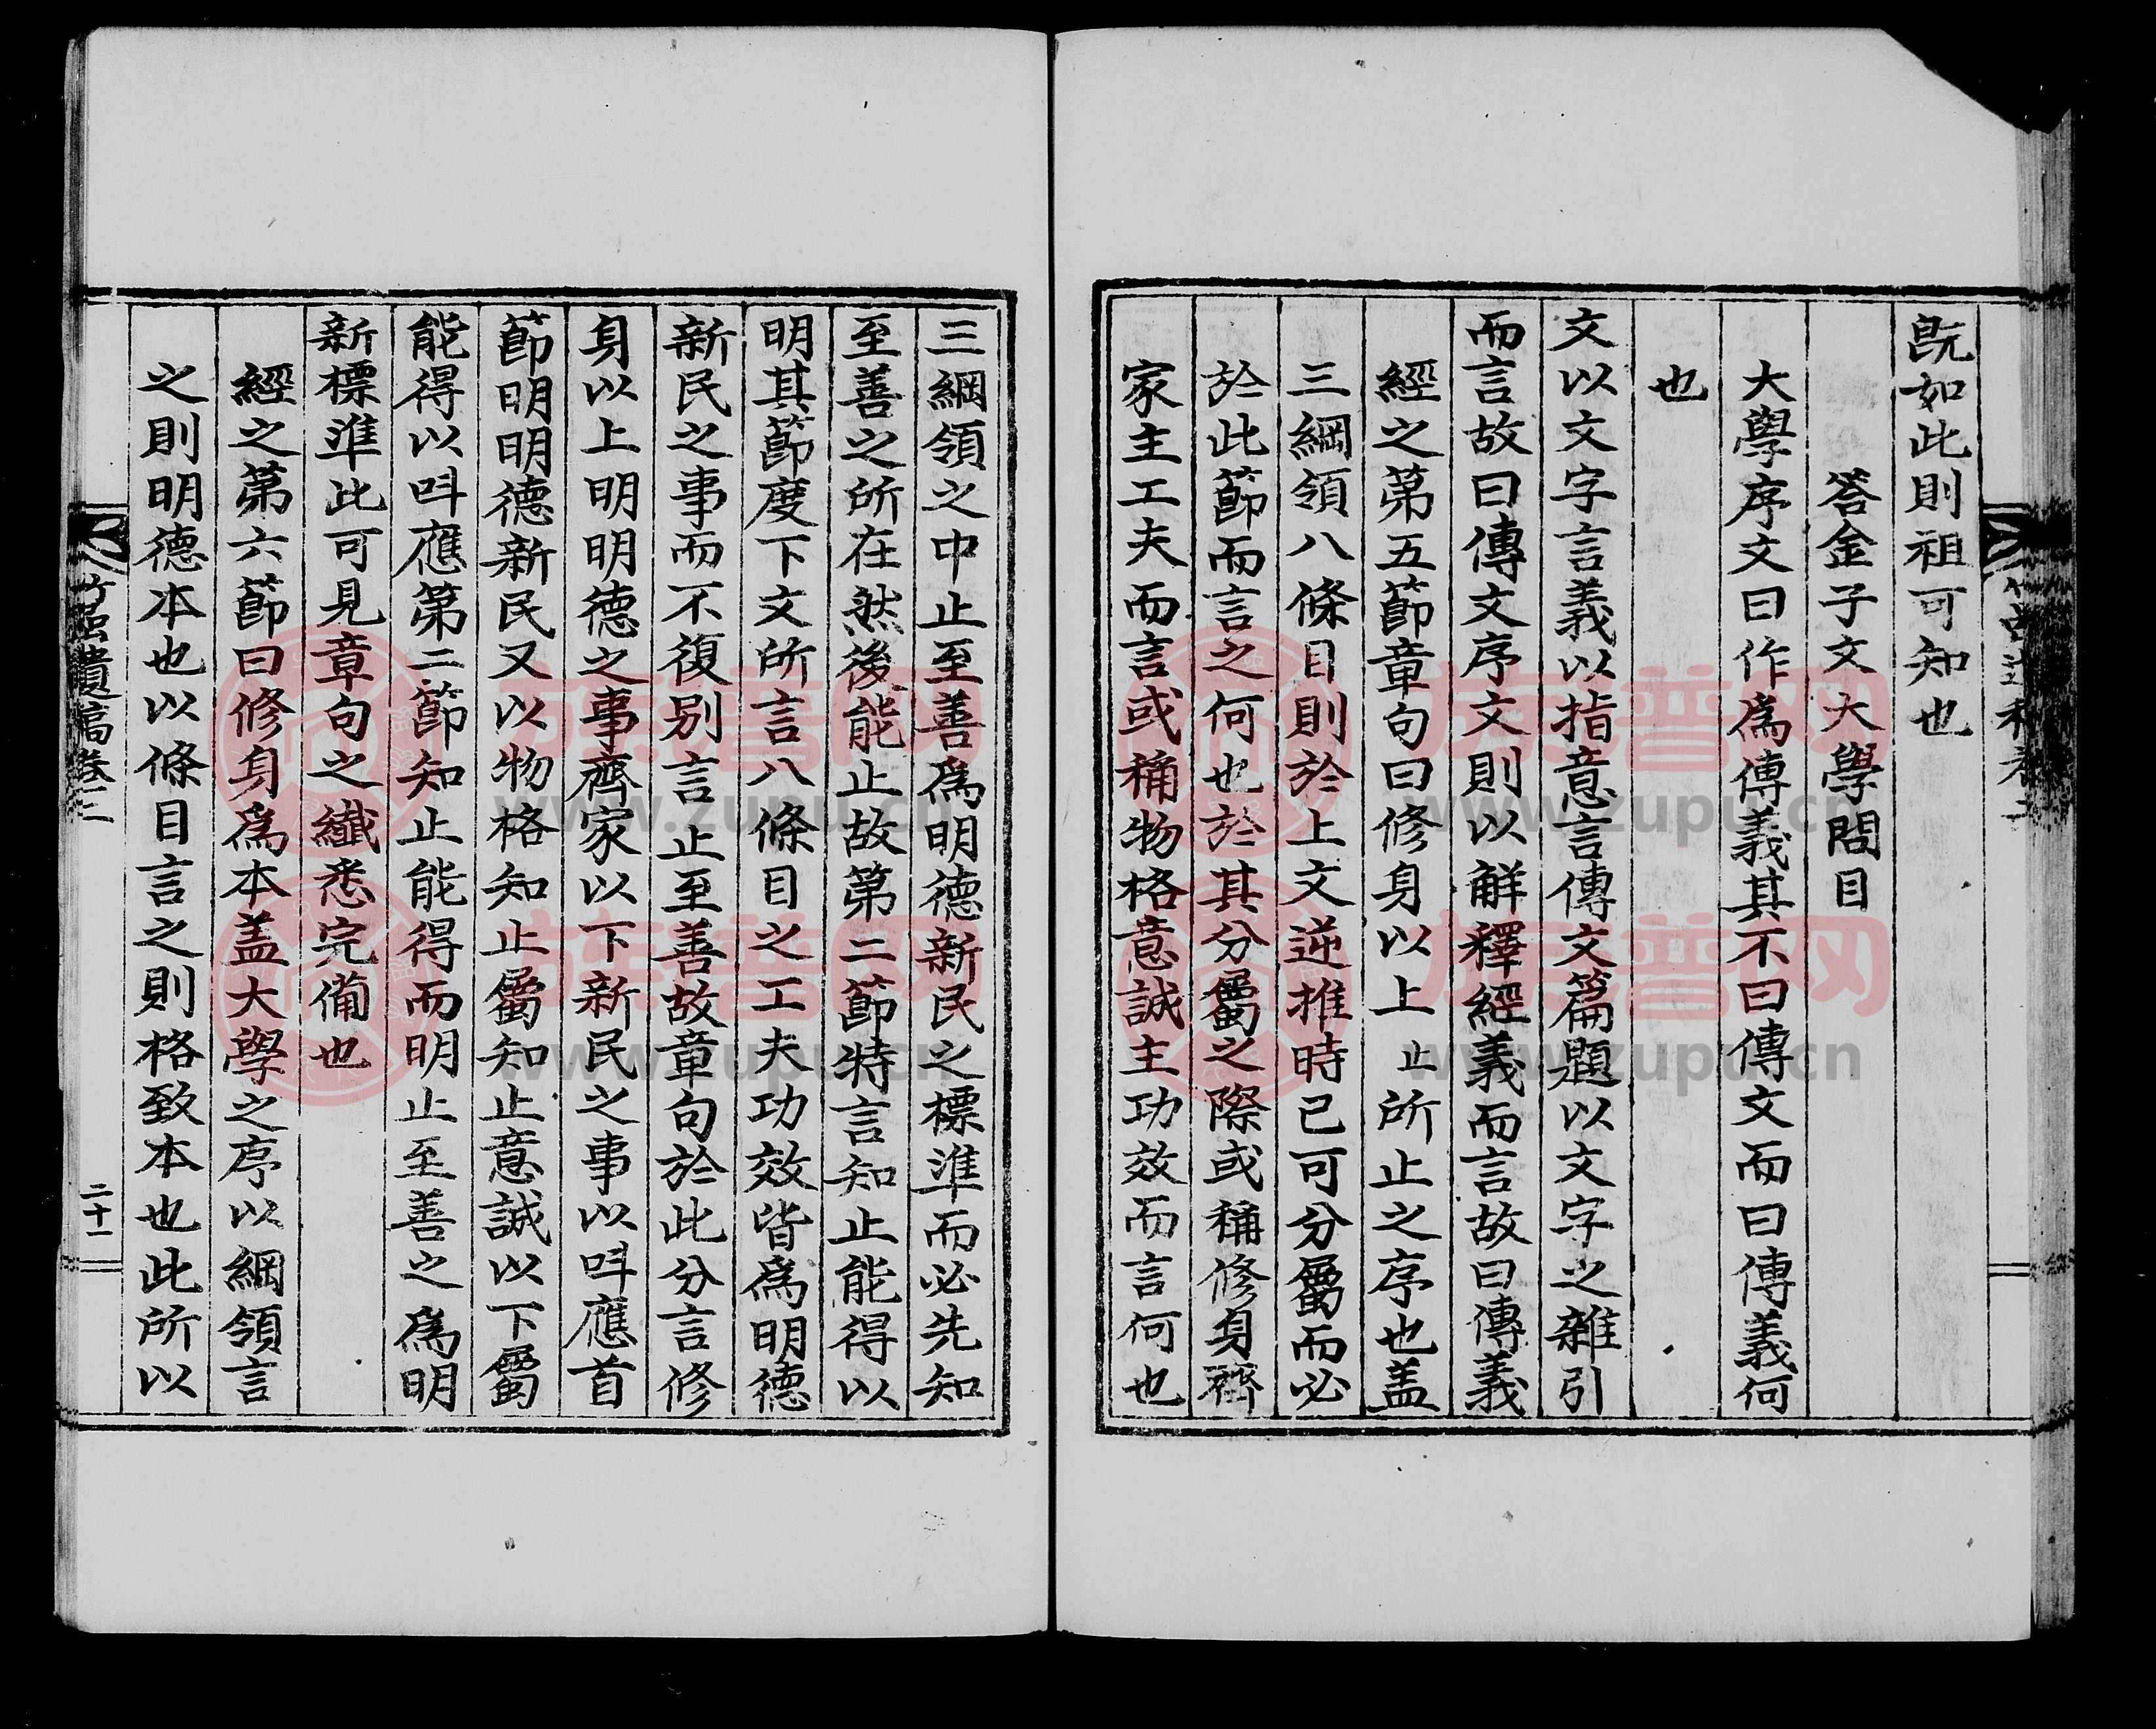 旣如此則祖可知也
答金子文大學問目
大學序文曰作爲傳義其不曰傳文而曰傳義何
也
文以文字言義以指意言傳文篇題以文字之雜引
而言故曰傳文序文則以解釋經義而言故曰傳義
經之第五節章句曰修身以上止所止之序也盖
三綱領八條目則於上文逆推時已可分屬而必
於此節而言之何也於其分屬之際或稱修身齊
家主工夫而言或稱物格意誠主功效而言何也
三綱領之中止至善爲明德新民之標準而必先知
至善之所在然後能止故第二節特言知止能得以
明其節度下文所言八條目之工夫功效皆爲明德
新民之事而不復別言止至善故章句於此分言修
身以上明明德之事齊家以下新民之事以呌應首
節明明德新民又以物格知止屬知止意誠以下屬
能得以呌應第二節知止能得而明止至善之爲明
新標準此可見章句之纖悉完備也
經之第六節曰修身爲本盖大學之序以綱領言
之則明德本也以條目言之則格致本也此所以
遺稿卷三
二十一
族譜网
www.zupu.cn
族譜网
www.zupu.cn
族譜网
www.zupu.cn
族譜网
www.zupu.cn